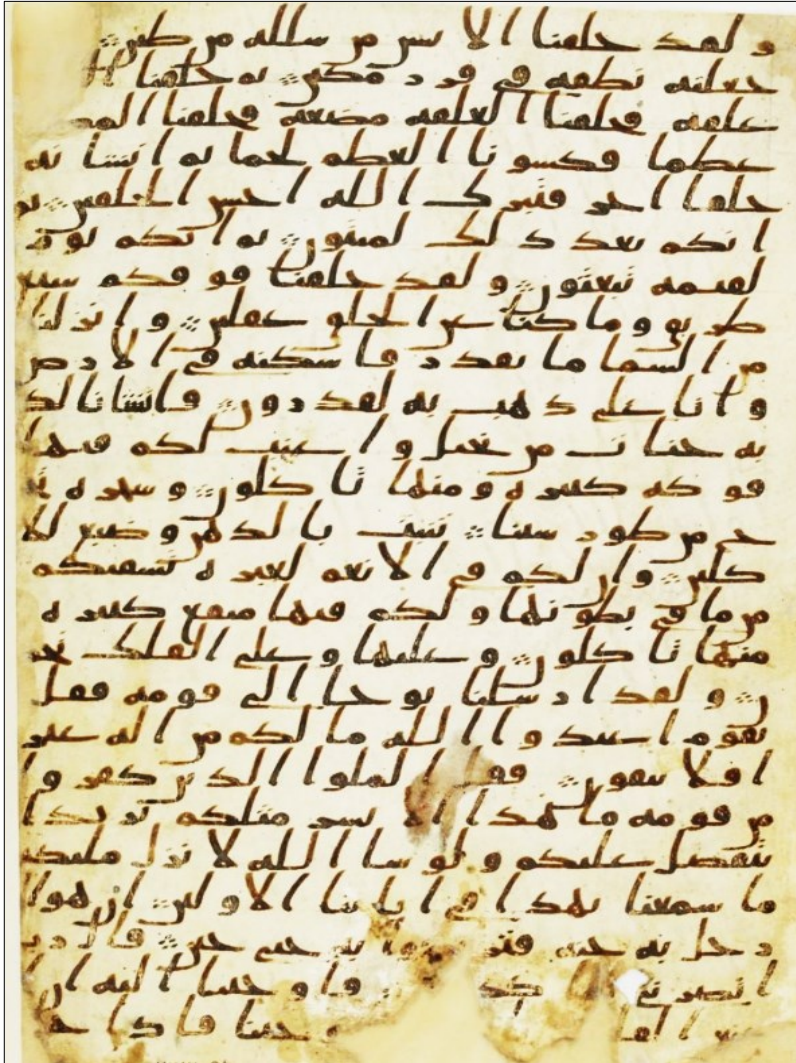 و لقد خلقنا الانسن من سلله من طين
جعلنه نطفه في قرر مكين ثم خلقنا ا
علقه فخلقنا العلقه مضغه فخلقنا المض
عظما فكسونا العظم لحما ثم انشانه
خلقا اخر فتبرك الله احسن الخلقين ثم
انكم بعد ذلك لميتون ثم انكم يوم
لقيمه تبعثون و لقد خلقنا فوقكم سبع
طريق وما كنا عن الخلق غفلين و انزلنا
من السما ما بقدر فاسكنه في الارض
و انا على ذهب به لقدرون فانشانا لكم
به جنات من نخيل و اعنب لكم فيها
فوكه كثيره ومنها تاكلون و شجره تخر
ج من طور سينا تنبت بالدهن وصبغ للا
كلين وان لكم في الانعم لعبره نسقيكم
مما في بطونها ولكم فيها منفع كثيره و
منها تاكلون و عليها وعلى الفلك تحملو
ن و لقد ارسلنا نوحا الى قومه فقل
يقوم اعبدوا الله ما لكم من اله غير
افلا تتقون فقل الملوا الذين كفروا
من قومه ما هذا الا بشر مثلكم يريد ا
يتفضل عليكم ولو شا الله لانزل مليكه
ما سمعنا بهذا في اباينا الاولين ان هو ا
رجل به جنه فتربصوا به حتى حين قال رب
انصرني فاوحينا اليه ان
وحينا فاذا جا